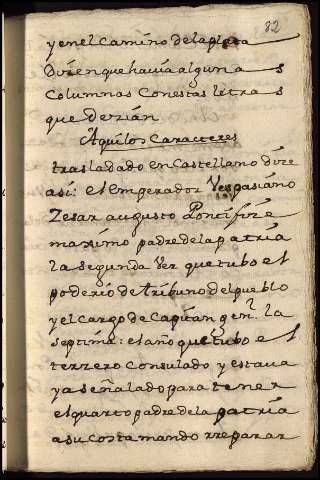 82
y en el camino de la plata
Diren que havia algunas
columnas con estas letras
que dezian.
Aqui los caracteres
trasladado en castellano dize
asi: el emperador Vespasiano
Zesar augusto Pontifize
maximo padre de la patria
la segunda Vez que tubo el
poderio de tribuno del pueblo
y el cargo de capitan gen.l la
septima: el año que tubo el
terzero consulado y estava
ya señalado para tener
el quarto padre de la patria
a su costa mando rreparar